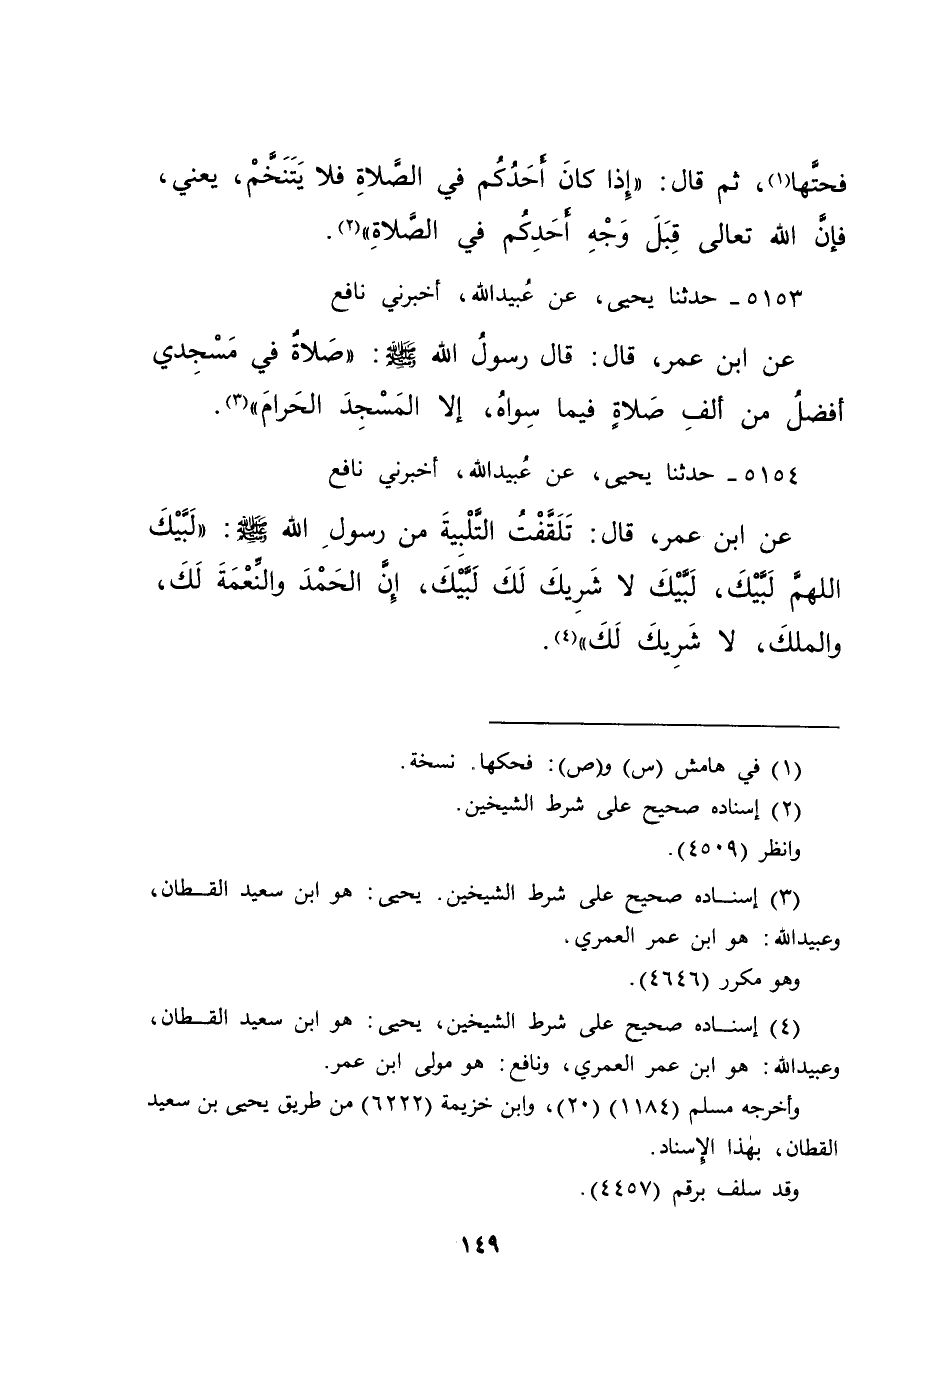 فحتَّها(١)، ثم قال: «إِذا كانَ أَحَدُكُم في الصَّلاةِ فلا يَتَنَخَّمْ، يعني،
فإنَّ الله تعالى قِبَلَ وَجْهِ أَحَدِكُم في الصَّلاةِ»(٢).
٥١٥٣ـ حدثنا يحيى، عن عُبيدالله، أخبرني نافع
عن ابن عمر، قال: قال رسولُ الله ﷺ: «صَلاةٌ في مَسْجِدي
أفضلُ من ألفِ صَلاةٍ فيما سِواهُ، إلا المَسْجِدَ الحَرامَ»(٣).
٥١٥٤ـ حدثنا يحيى، عن عُبيدالله، أخبرني نافع
عن ابن عمر، قال: تَلَقَّفْتُ التَّلْبِيةَ من رسولِ الله ﷺ: «لَبَّيْكَ
اللهمَّ لَبَّيْكَ، لَبَّيْكَ لا شَرِيكَ لَكَ لَبَّيْكَ، إنَّ الحَمْدَ والنِّعْمَةَ لَكَ،
والملكَ، لا شَرِيكَ لَكَ»(٤).
(١) في هامش (س) و(ص): فحكها. نسخة.
(٢) إسناده صحيح على شرط الشيخين.
وانظر (٤٥٠٩).
(٣) إسنـاده صحيح على شرط الشيخين. يحيى: هو ابن سعيد القـطان،
وعبيدالله: هو ابن عمر العمري.
وهو مكرر (٤٦٤٦).
(٤) إسنـاده صحيح على شرط الشيخين، يحيى: هو ابن سعيد القـطان،
وعبيدالله: هو ابن عمر العمري، ونافع: هو مولى ابن عمر.
وأخرجه مسلم (١١٨٤) (٢٠)، وابن خزيمة (٦٢٢٢) من طريق يحيى بن سعيد
القطان، بهٰذا الإِسناد.
وقد سلف برقم (٤٤٥٧).
١٤٩